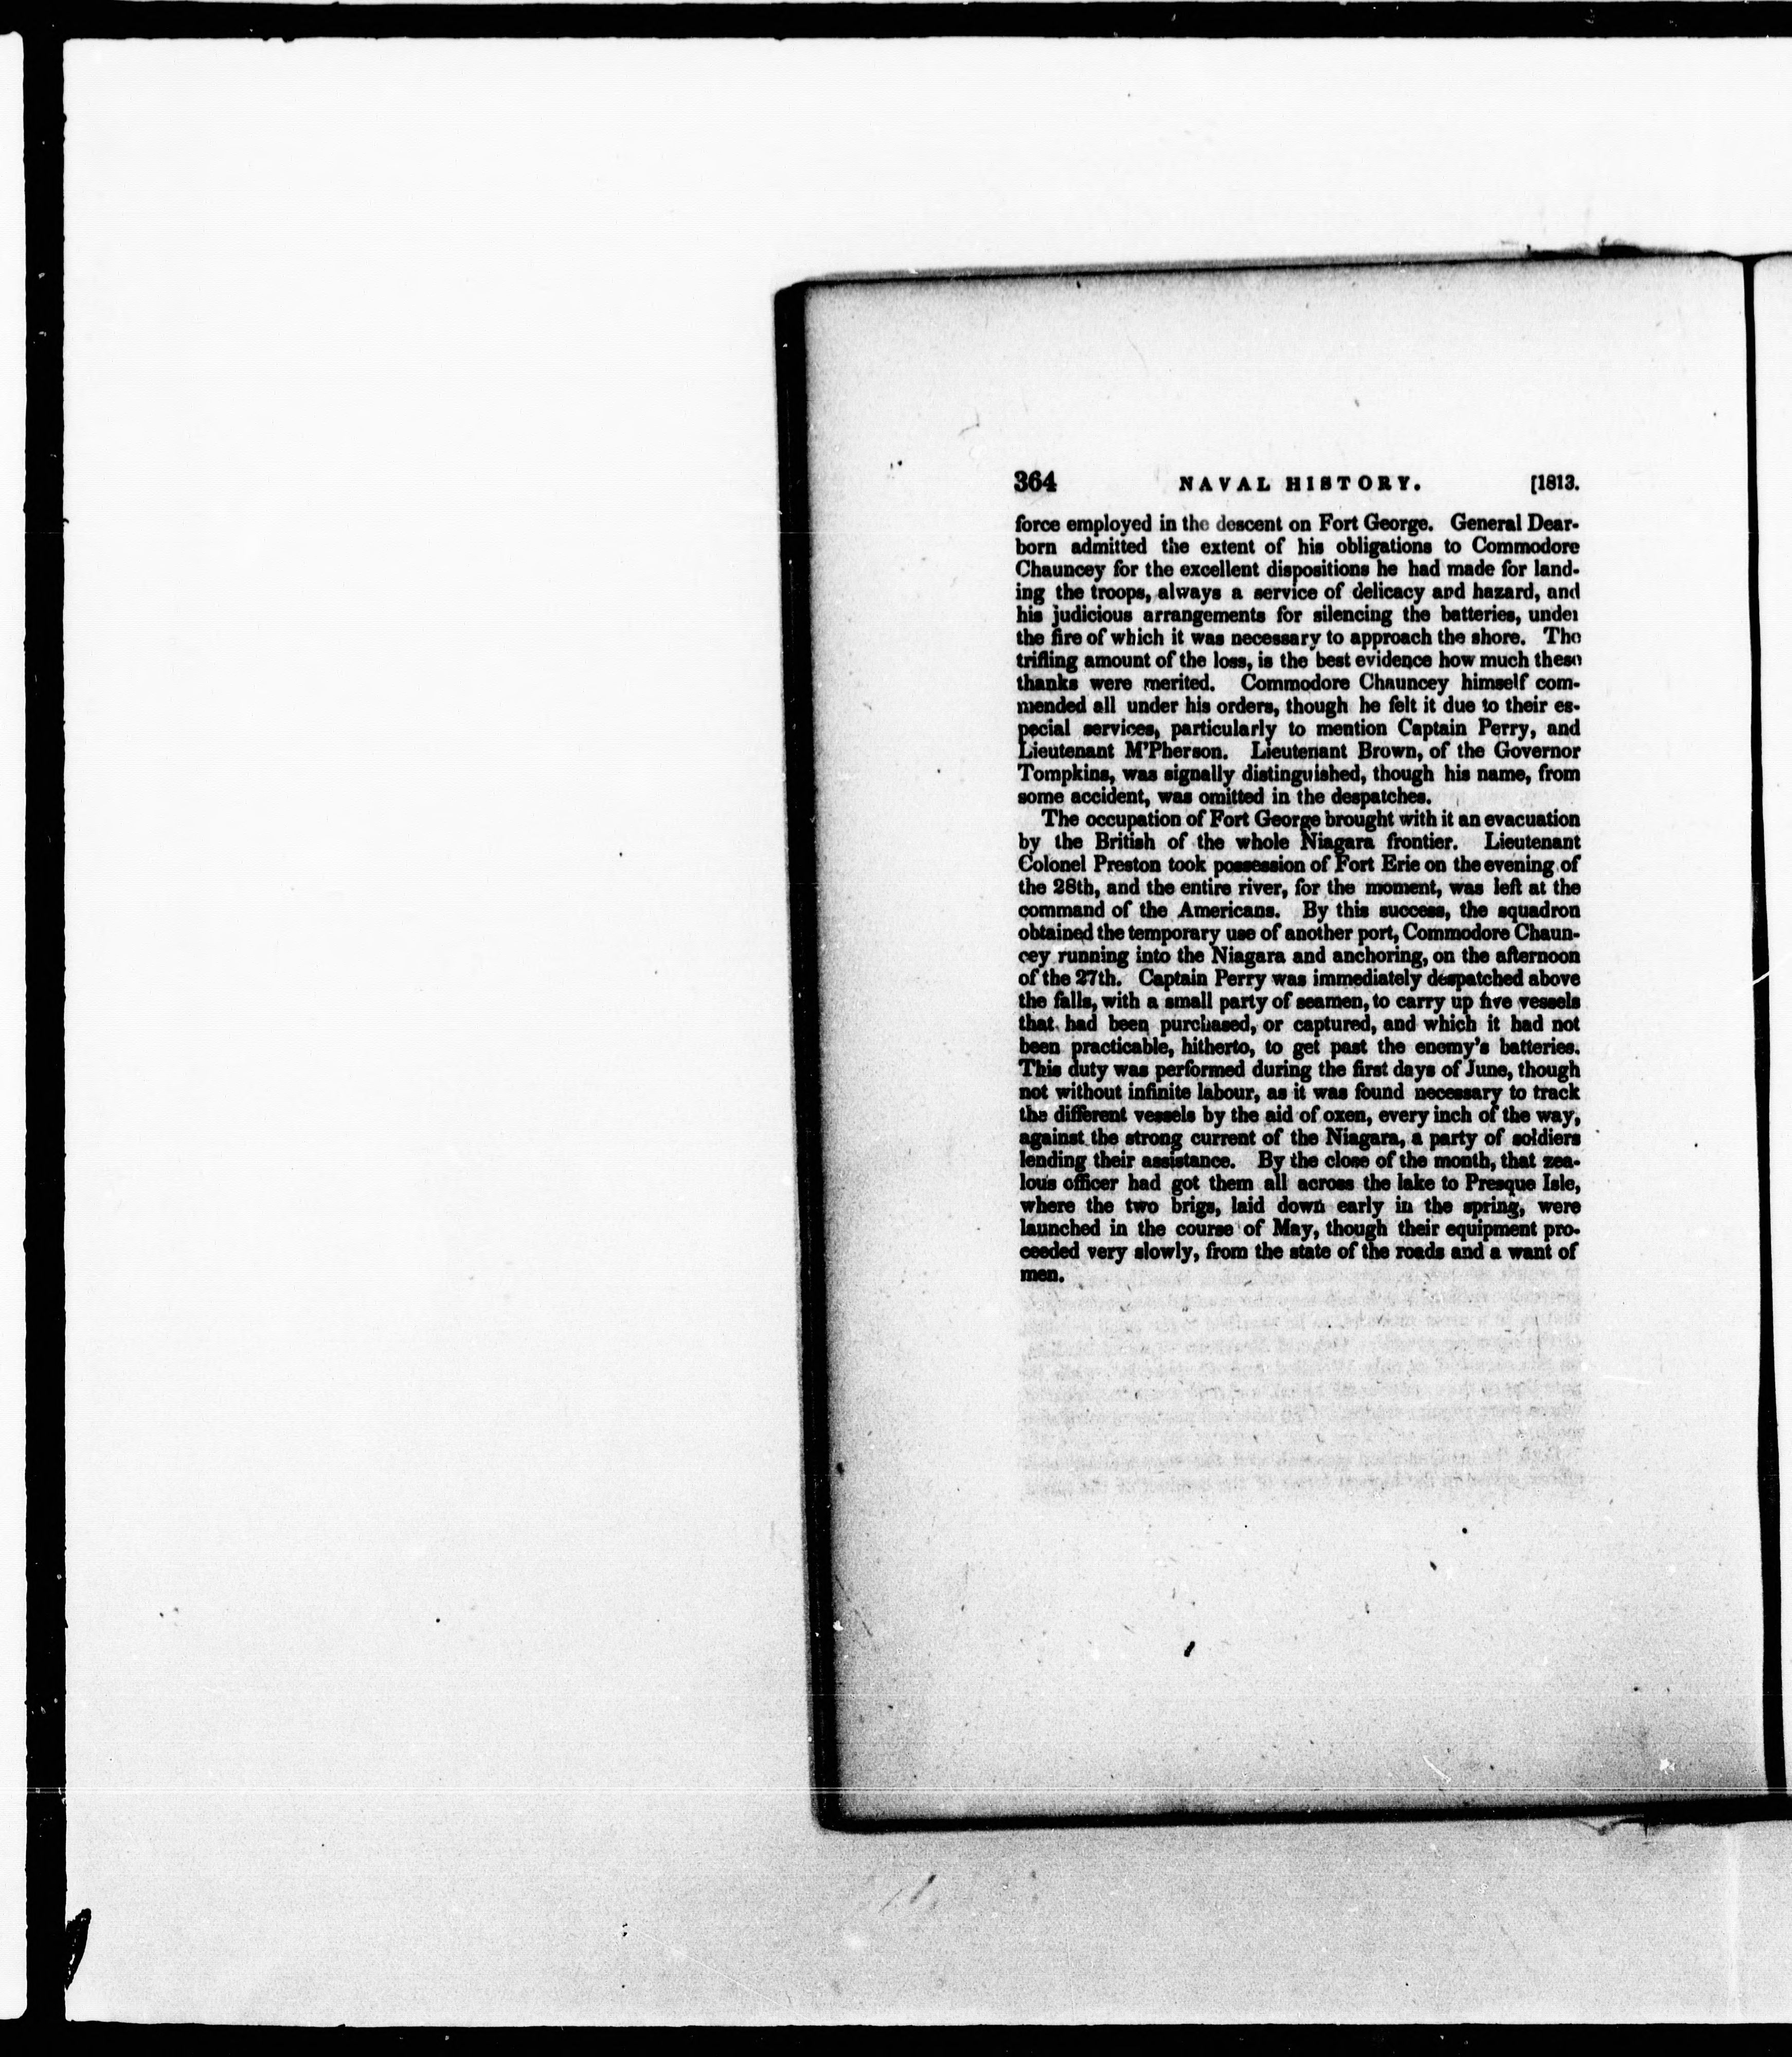 364 NAVAL HISTORY. [1813.
force employed in the descent on Fort George. General Dear-
born admitted the extent of his obligations to Commodore
Chauncey for the excellent dispositions he had made for land-
ing the troops, always a service of delicacy and hazard, and
his judicious arrangements for silencing the batteries, under
the fire of which it was necessary to approach the shore. The
trifling amount of the loss, is the best evidence how much these
thanks were merited. Commodore Chauncey himself com-
mended all under his orders, though he felt it due to their es-
pecial services, particularly to mention Captain Perry, and
Lieutenant M'Pherson. Lieutenant Brown, of the Governor
Tompkins, was signally distinguished, though his name, from
some accident, was omitted in the despatches.
The occupation of Fort George brought with it an evacuation
by the British of the whole Niagara frontier. Lieutenant
Colonel Preston took possession of Fort Erie on the evening of
the 28th, and the entire river, for the moment, was left at the
command of the Americans. By this success, the squadron
obtained the temporary use of another port, Commodore Chaun-
cey running into the Niagara and anchoring, on the afternoon
of the 27th. Captain Perry was immediately despatched above
the falls, with a small party of seamen, to carry up five vessels
that had been purchased, or captured, and which it had not
been practicable, hitherto, to get past the enemy's batteries.
This duty was performed during the first days of June, though
not without infinite labour, as it was found necessary to track
the different vessels by the aid of oxen, every inch of the way,
against the strong current of the Niagara, a party of soldiers
lending their assistance. By the close of the month, that zea-
lous officer had got them all across the lake to Presque Isle,
where the two brigs, laid down early in the spring, were
launched in the course of May, though their equipment pro-
ceeded very slowly, from the state of the roads and a want of
men.